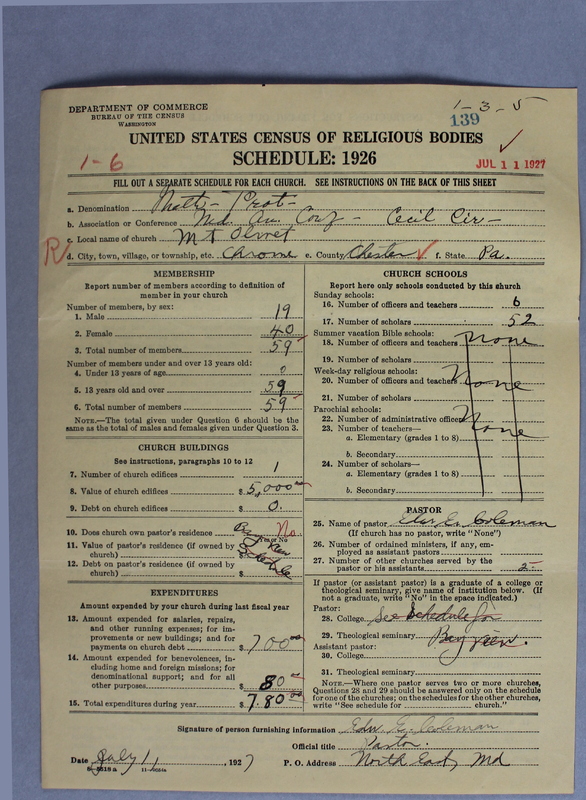 DEPARTMENT OF COMMERCE
BUREAU OF THE CENSUS
WASHINGTON
1-3-5
139
UNITED STATES CENSUS OF RELIGIOUS BODIES
SCHEDULE: 1926
1-6
JUL 11 1927
FILL OUT A SEPARATE SCHEDULE FOR EACH CHURCH. SEE INSTRUCTIONS ON THE BACK OF THIS SHEET
a. Denomination Meth- Prot-
b. Association or Conference Md. An. Conf - Cecil Cir-
c. Local name of church Mt Olivet
R d. City, town, village, or township, etc. Chrome e. County Chester f. State Pa.
MEMBERSHIP
Report number of members according to definition of member in your church
Number of members, by sex:
1. Male 19
2. Female 40
3. Total number of members 59
Number of members under and over 13 years old:
4. Under 13 years of age 0
5. 13 years old and over 59
6. Total number of members 59
NOTE.—The total given under Question 6 should be the same as the total of males and females given under Question 3.
CHURCH BUILDINGS
See instructions, paragraphs 10 to 12
7. Number of church edifices 1
8. Value of church edifices $ 5,000.00
9. Debt on church edifices $ 0.
10. Does church own pastor's residence No.
Yes or No
11. Value of pastor's residence (if owned by church) $
12. Debt on pastor's residence (if owned by church) $
Bay View Schedule
EXPENDITURES
Amount expended by your church during last fiscal year
13. Amount expended for salaries, repairs, and other running expenses; for improvements or new buildings; and for payments on church debt $ 700.00
14. Amount expended for benevolences, including home and foreign missions; for denominational support; and for all other purposes $ 80.00
15. Total expenditures during year $ 780.00
CHURCH SCHOOLS
Report here only schools conducted by this church
Sunday schools:
16. Number of officers and teachers 6
17. Number of scholars 52
Summer vacation Bible schools:
18. Number of officers and teachers None
19. Number of scholars
Week-day religious schools:
20. Number of officers and teachers None
21. Number of scholars
Parochial schools:
22. Number of administrative officers None
23. Number of teachers—
a. Elementary (grades 1 to 8)
b. Secondary
24. Number of scholars—
a. Elementary (grades 1 to 8)
b. Secondary
PASTOR
25. Name of pastor Edw. E. Coleman
(If church has no pastor, write "None")
26. Number of ordained ministers, if any, employed as assistant pastors
27. Number of other churches served by the pastor or his assistants 2
If pastor (or assistant pastor) is a graduate of a college or theological seminary, give name of institution below. (If not a graduate, write "No" in the space indicated.)
Pastor:
28. College See Schedule for
29. Theological seminary Bay View.
Assistant pastor:
30. College
31. Theological seminary
NOTE.—Where one pastor serves two or more churches, Questions 28 and 29 should be answered only on the schedule for one of the churches; on the schedules for the other churches, write "See schedule for ______ church."
Signature of person furnishing information Edw E. Coleman
Official title Pastor.
Date July 1, 1927 P. O. Address North East, Md